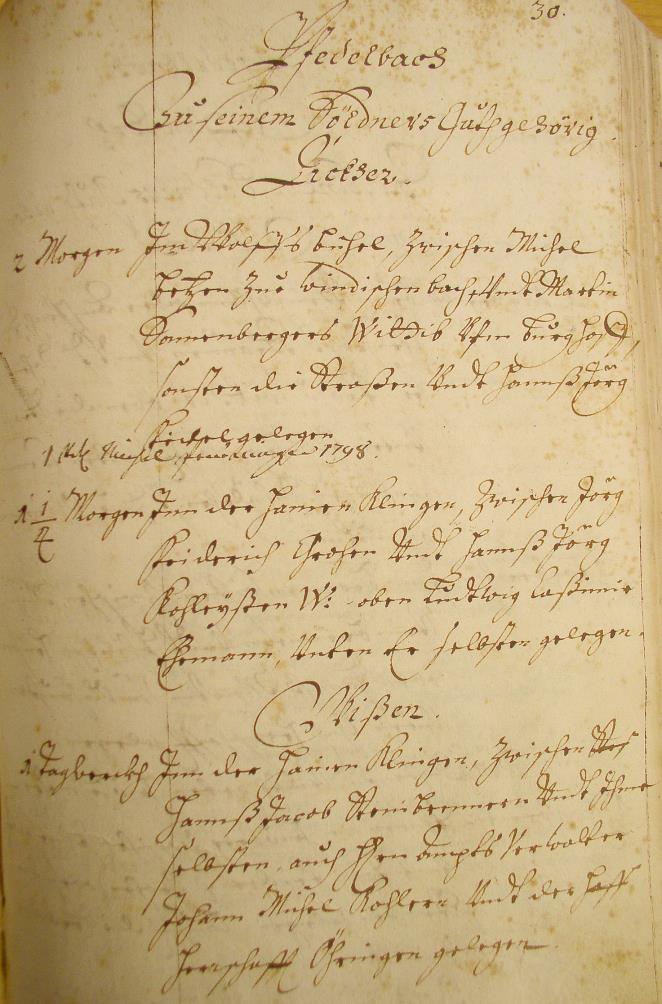 30.
Pfedelbach
Zu seinem Söldners Guth gehörig
Äckher.
2 Morgen Im Wolffs buhel, zwischen Michel
betzen zue Windischenbach, Undt Martin
Sonnenbergers Wittib Vfm burghoff,
sonsten die Straßen Undt Hannß Jörg
gelegen
1 Michel 1798.
1 1/4 Morgen Inn der Hainen Klingen, zwischen Jörg
friderich Grohen Undt Hannß Jörg
Kohleyßen W: oben Ludtwig Caßimir
Ehemann, Unten Er selbsten gelegen.
Wißen.
1 Tagwerckh Inn der Hainen Klingen, zwischen
Hannß Jacob Steinbrennern Undt Ihme
selbsten, auch Hrn Ampts Verwalter
Johann Michel Kohlern Undt der
Herrschafft Öhringen gelegen.